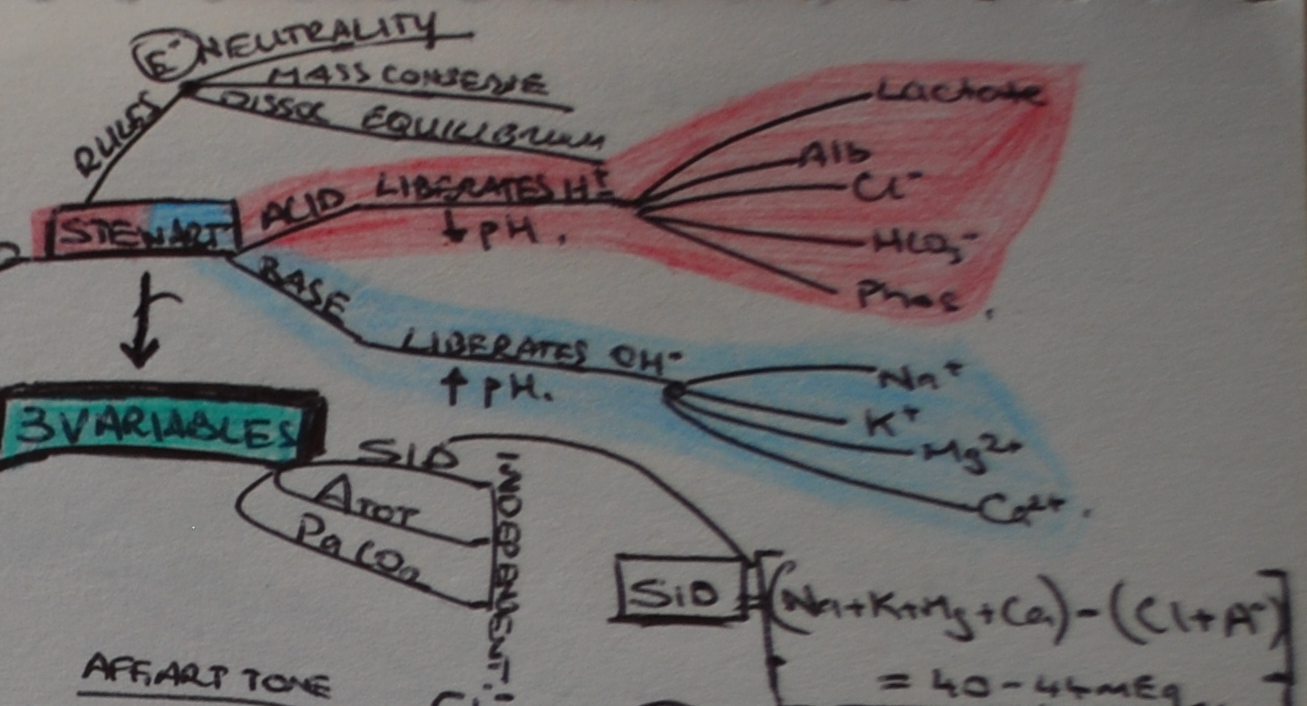 E- NEUTRALITY
MASS CONSERVE
DISSOC EQUILIBRIUM
RULES
STEWART
ACID
LIBERATES H+
↓ pH.
Lactate
Alb
Cl-
HCO3-
Phos.
BASE
LIBERATES OH-
↑ pH.
Na+
K+
Mg2+
Ca2+.
3 VARIABLES
SID
ATOT
PaCO2
INDEPENDENT
SID = [(Na+K+Mg+Ca) - (Cl+A-)]
= 40-44mEq
AFF. ART TONE